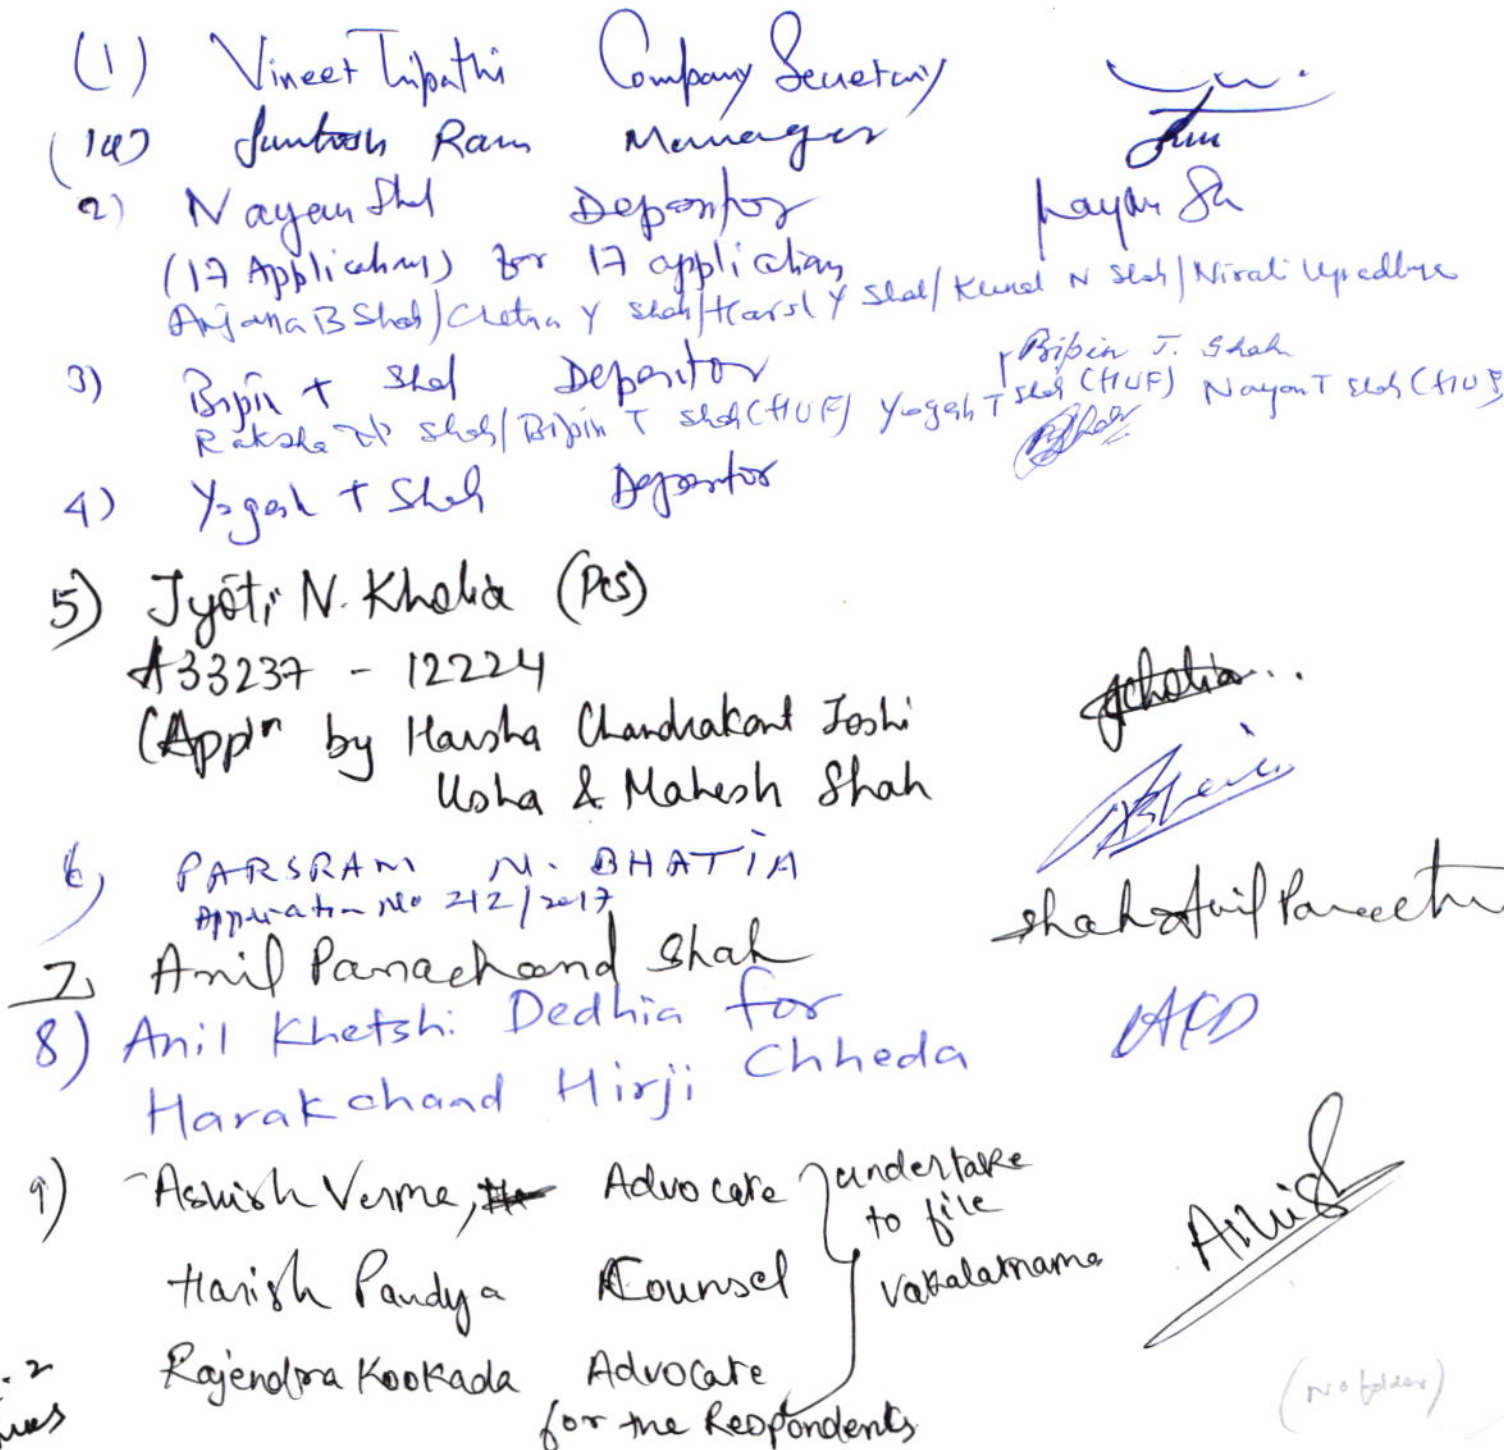 (1) Vineet Tripathi Company Secretary
(1a) Santosh Ram Manager
2) Nayan Shah Depositor Nayan Sh
(17 Applications) for 17 application
Anjana B Shah/Chetna Y Shah/Harsh Y Shah/Kunal N Shah/Nirali Upadhye
3) Bipin T Shah Depositor Bipin T. Shah
Raksha N Shah/Bipin T Shah (HUF) Yogesh T Shah (HUF) Nayan T Shah (HUF)
4) Yogesh T Shah Depositor
5) Jyoti N. Kholia (PCS)
A33237 - 12224
(Appln by Harsha Chandrakant Joshi
Usha & Mahesh Shah
6) PARSRAM N. BHATIA
Application No 212/2017
7 Anil Panachand Shah
8) Anil Khetshi Dedhia for
Harakchand Hirji Chheda
9) Ashish Verma, Advocate undertake
to file
vakalatnama
Harish Pandya Counsel
Rajendra Kookada Advocate
for the Respondents
(No folder)